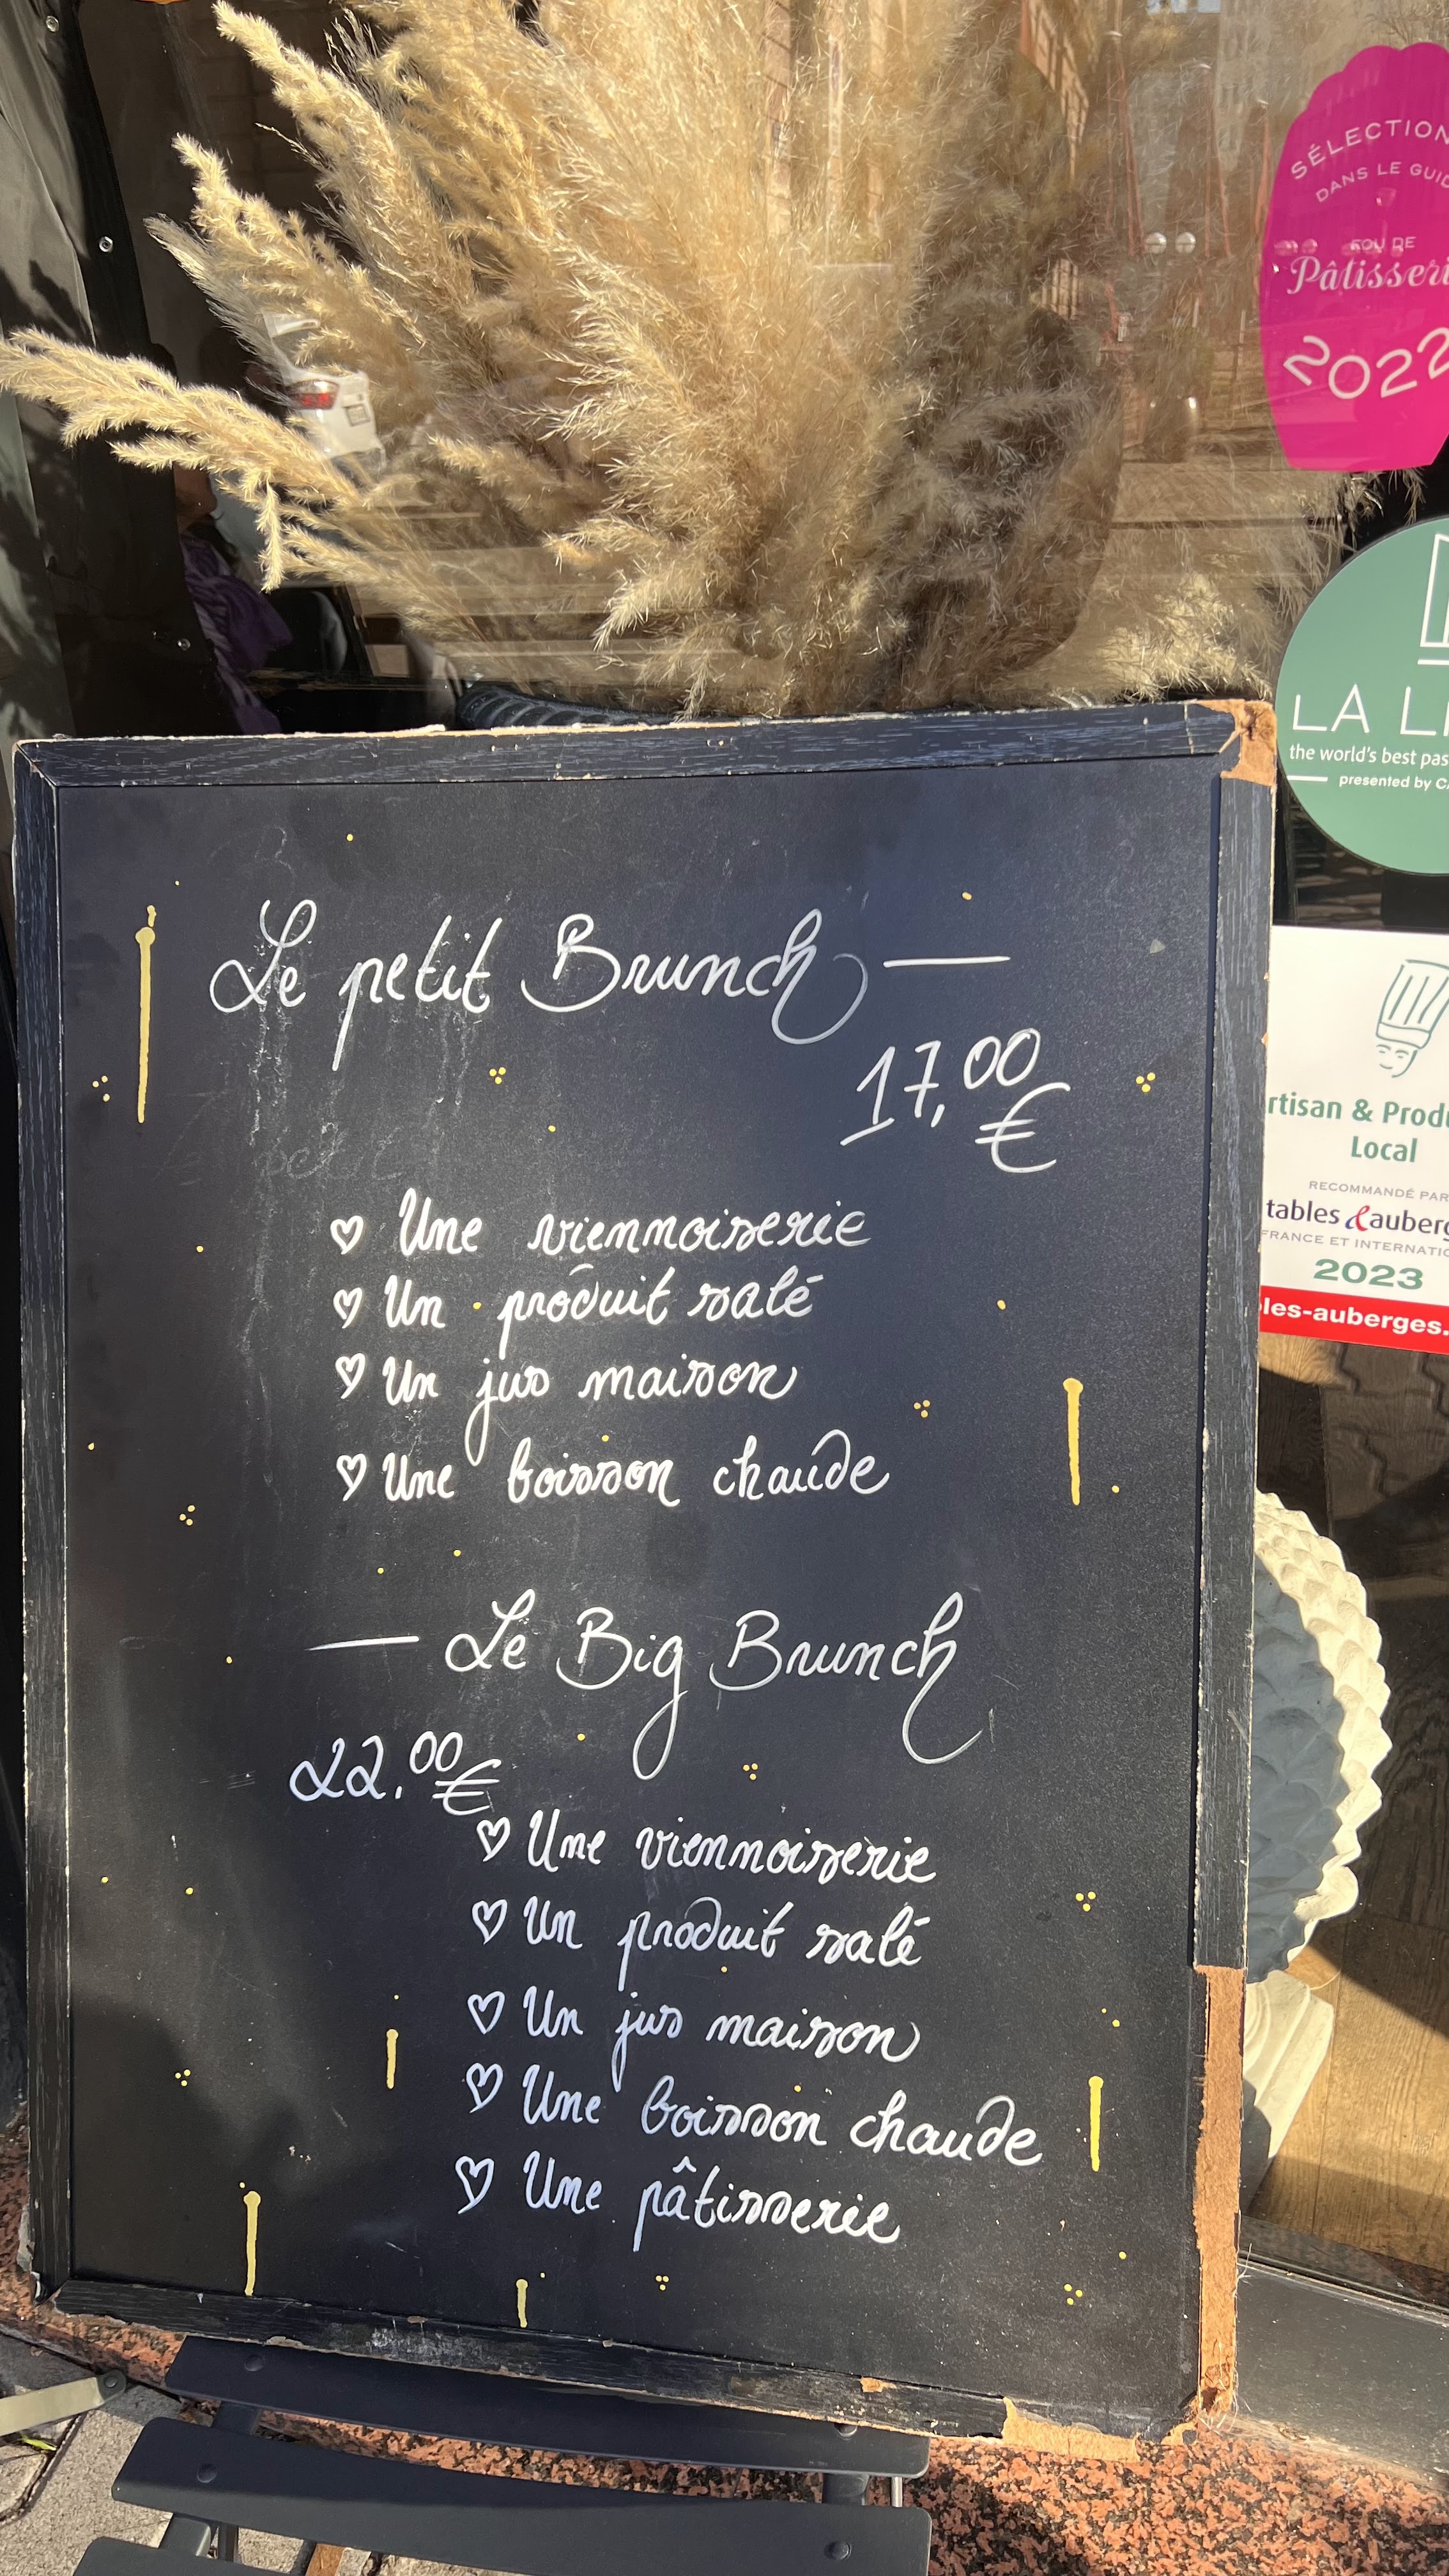 SÉLECTION
DANS LE GUID
FOU DE
Pâtisseri
2022
LA LI
the world's best pas
presented by CA
rtisan & Produ
Local
RECOMMANDÉ PAR
tables &auberg
FRANCE ET INTERNATIO
2023
les-auberges.
Le petit Brunch —
17,00
€
petit
♡ Une viennoiserie
♡ Un produit salé
♡ Un jus maison
♡ Une boisson chaude
— Le Big Brunch
22.00€
♡ Une viennoiserie
♡ Un produit salé
♡ Un jus maison
♡ Une boisson chaude
♡ Une pâtisserie